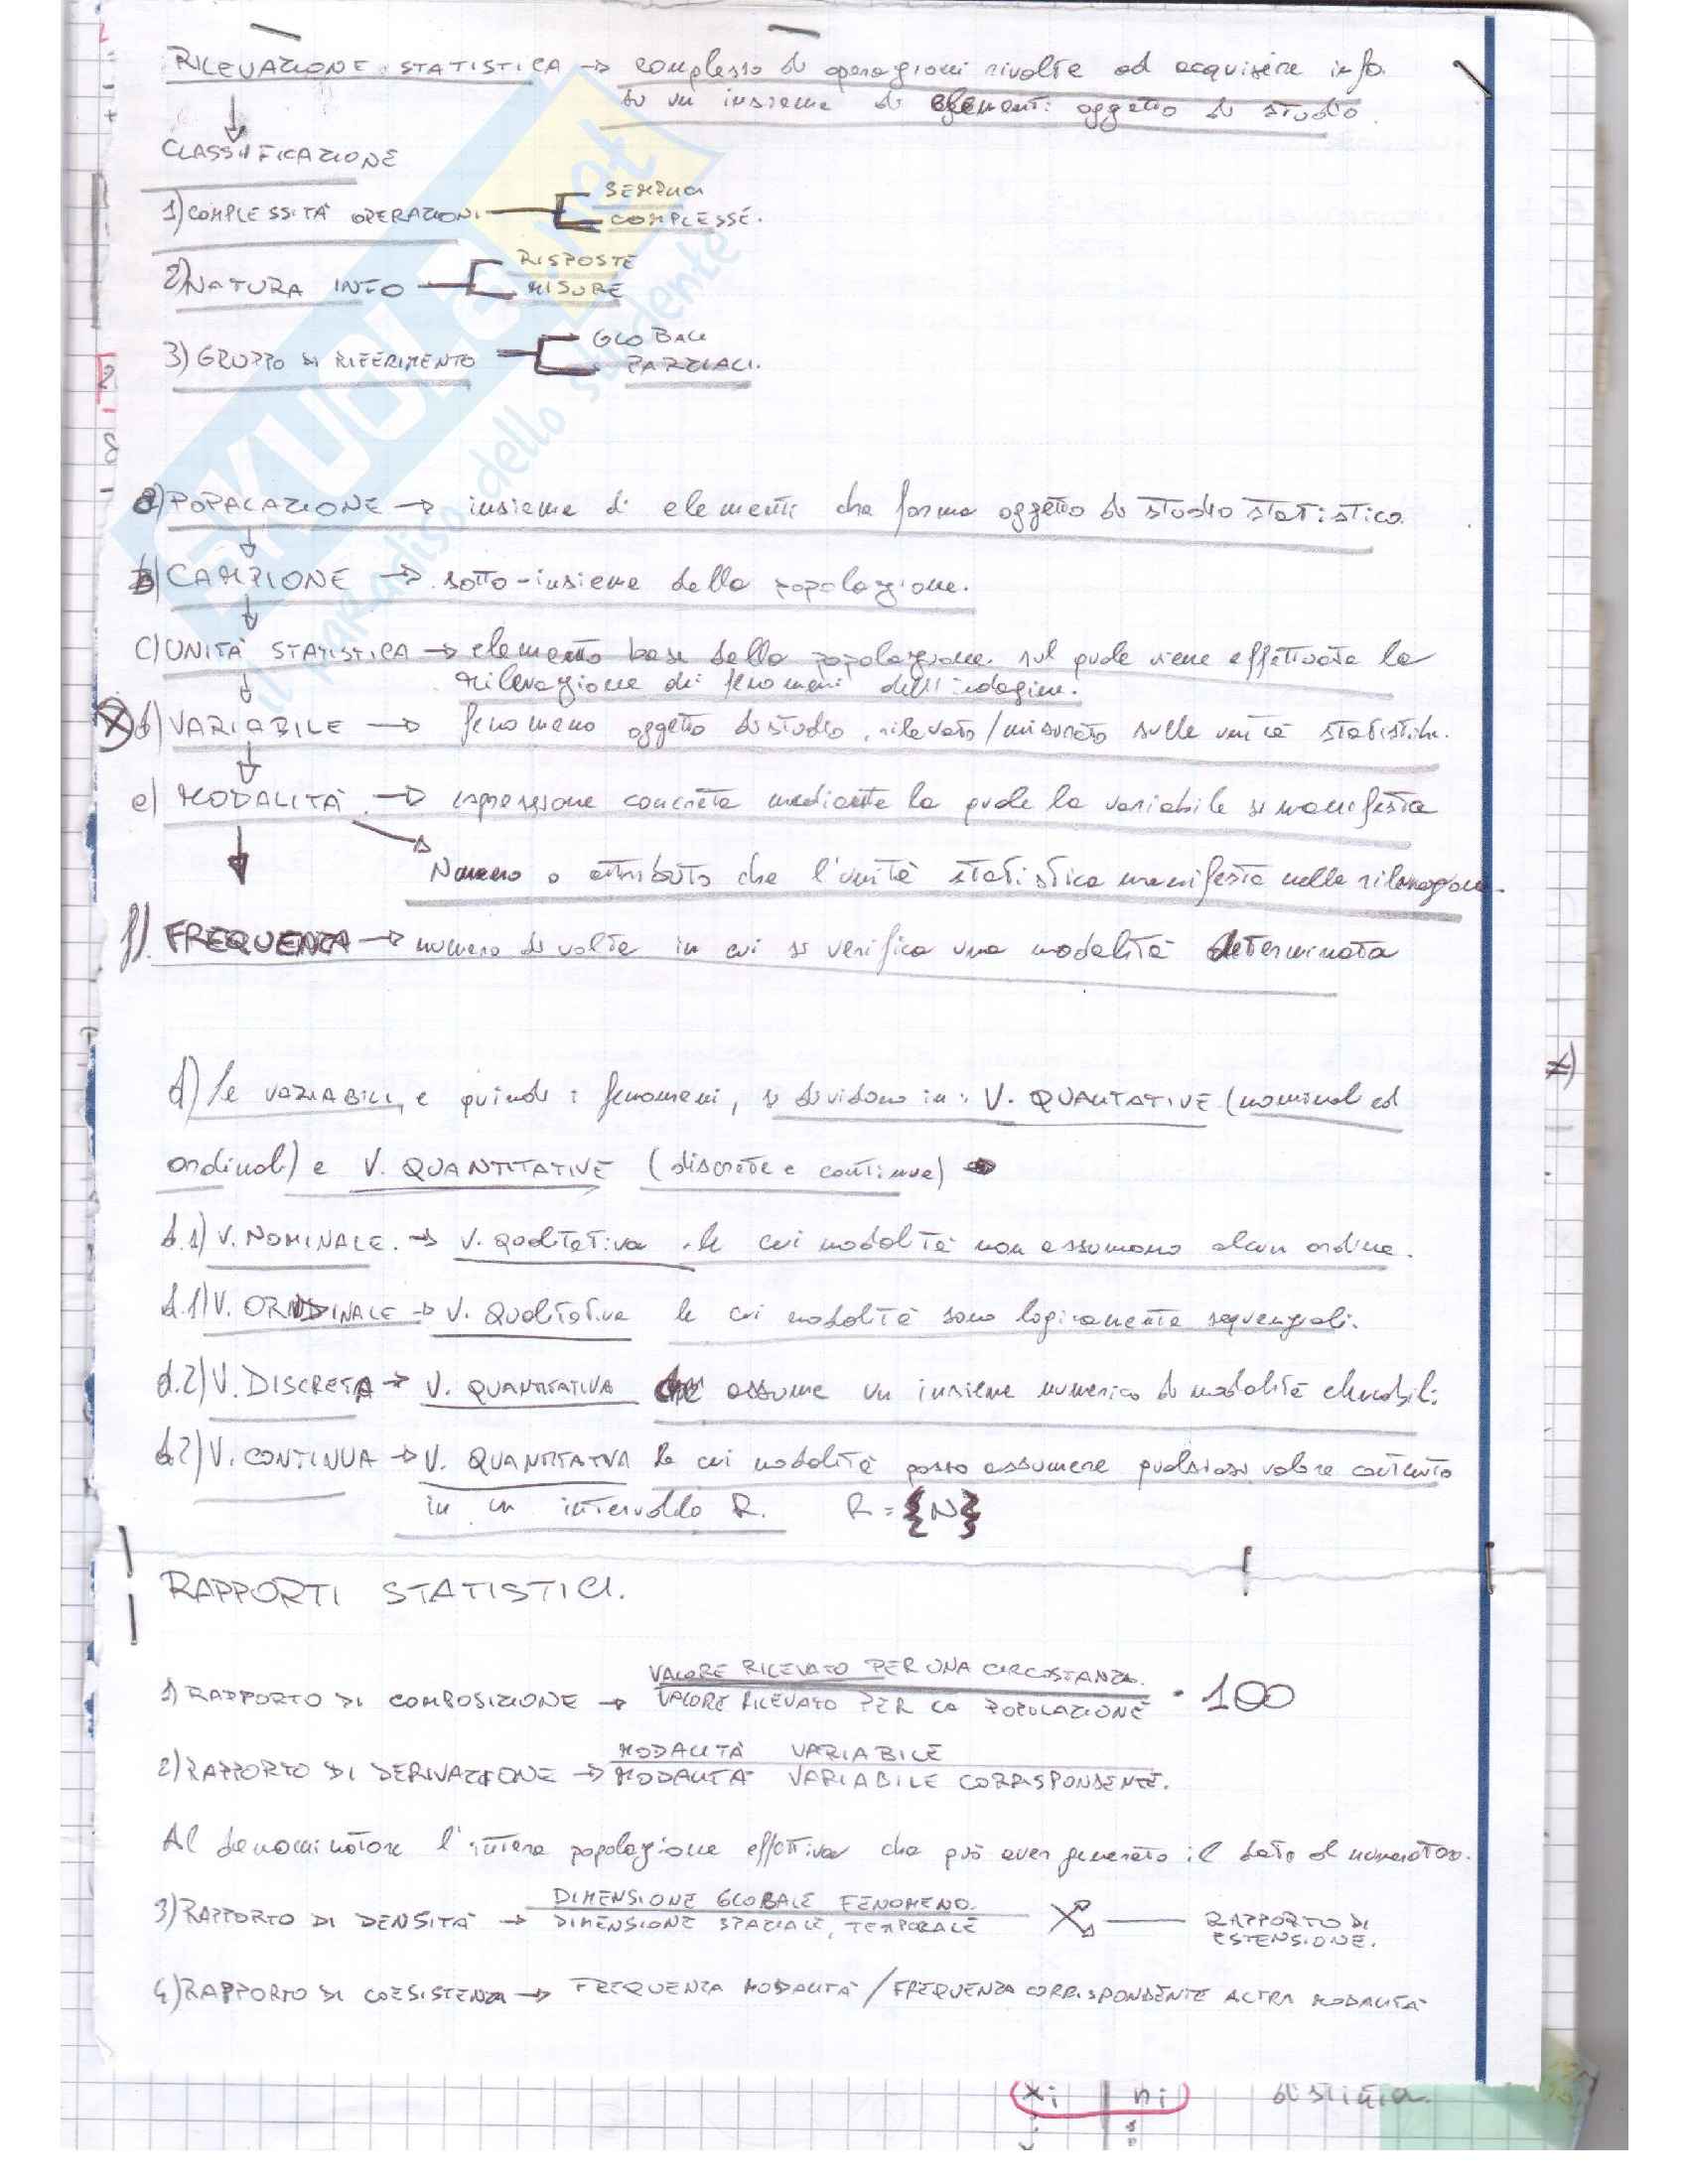 RILEVAZIONE STATISTICA → complesso di operazioni rivolte ad acquisire info.
su un insieme di elementi oggetto di studio.
CLASSIFICAZIONE
1) COMPLESSITÀ OPERAZIONI
SEMPLICI
COMPLESSE.
2) NATURA INFO
RISPOSTE
MISURE
3) GRUPPO DI RIFERIMENTO
GLOBALI
PARZIALI.
SKUOLA.net
il paradiso dello studente
a) POPALAZIONE → insieme di elementi che forma oggetto di studio statistico.
b) CAMPIONE → sotto-insieme della popolazione.
c) UNITÀ STATISTICA → elemento base della popolazione sul quale viene effettuata la
rilevazione dei fenomeni dell'indagine.
d) VARIABILE → fenomeno oggetto di studio, rilevato/misurato sulle unità statistiche.
e) MODALITÀ → espressione concreta mediante la quale la variabile si manifesta
Numero o attributo che l'unità statistica manifesta nella rilevazione.
f) FREQUENZA → numero di volte in cui si verifica una modalità determinata
d) Le VARIABILI, e quindi i fenomeni, si dividono in: V. QUALITATIVE (nominali ed
ordinali) e V. QUANTITATIVE (discrete e continue)
d.1) V. NOMINALE. → V. qualitativa le cui modalità non assumono alcun ordine.
d.1) V. ORDINALE → V. Qualitativa le cui modalità sono logicamente sequenziali.
d.2) V. DISCRETA → V. QUANTITATIVA che assume un insieme numerico di modalità
d.2) V. CONTINUA → V. QUANTITATIVA le cui modalità posso assumere qualsiasi valore contenuto
in un intervallo R. R = {N}
RAPPORTI STATISTICI.
1) RAPPORTO DI COMPOSIZIONE → VALORE RILEVATO PER UNA CIRCOSTANZA.
VALORE RILEVATO PER LA POPOLAZIONE · 100
2) RAPPORTO DI DERIVAZIONE → MODALITÀ VARIABILE
MODALITÀ VARIABILE CORRISPONDENTE.
Al denominatore l'intera popolazione effettiva che può aver generato il dato al numeratore.
3) RAPPORTO DI DENSITÀ → DIMENSIONE GLOBALE FENOMENO.
DIMENSIONE SPAZIALE, TEMPORALE
RAPPORTO DI
ESTENSIONE.
4) RAPPORTO DI COESISTENZA → FREQUENZA MODALITÀ / FREQUENZA CORRISPONDENTE ALTRA MODALITÀ
xi ni